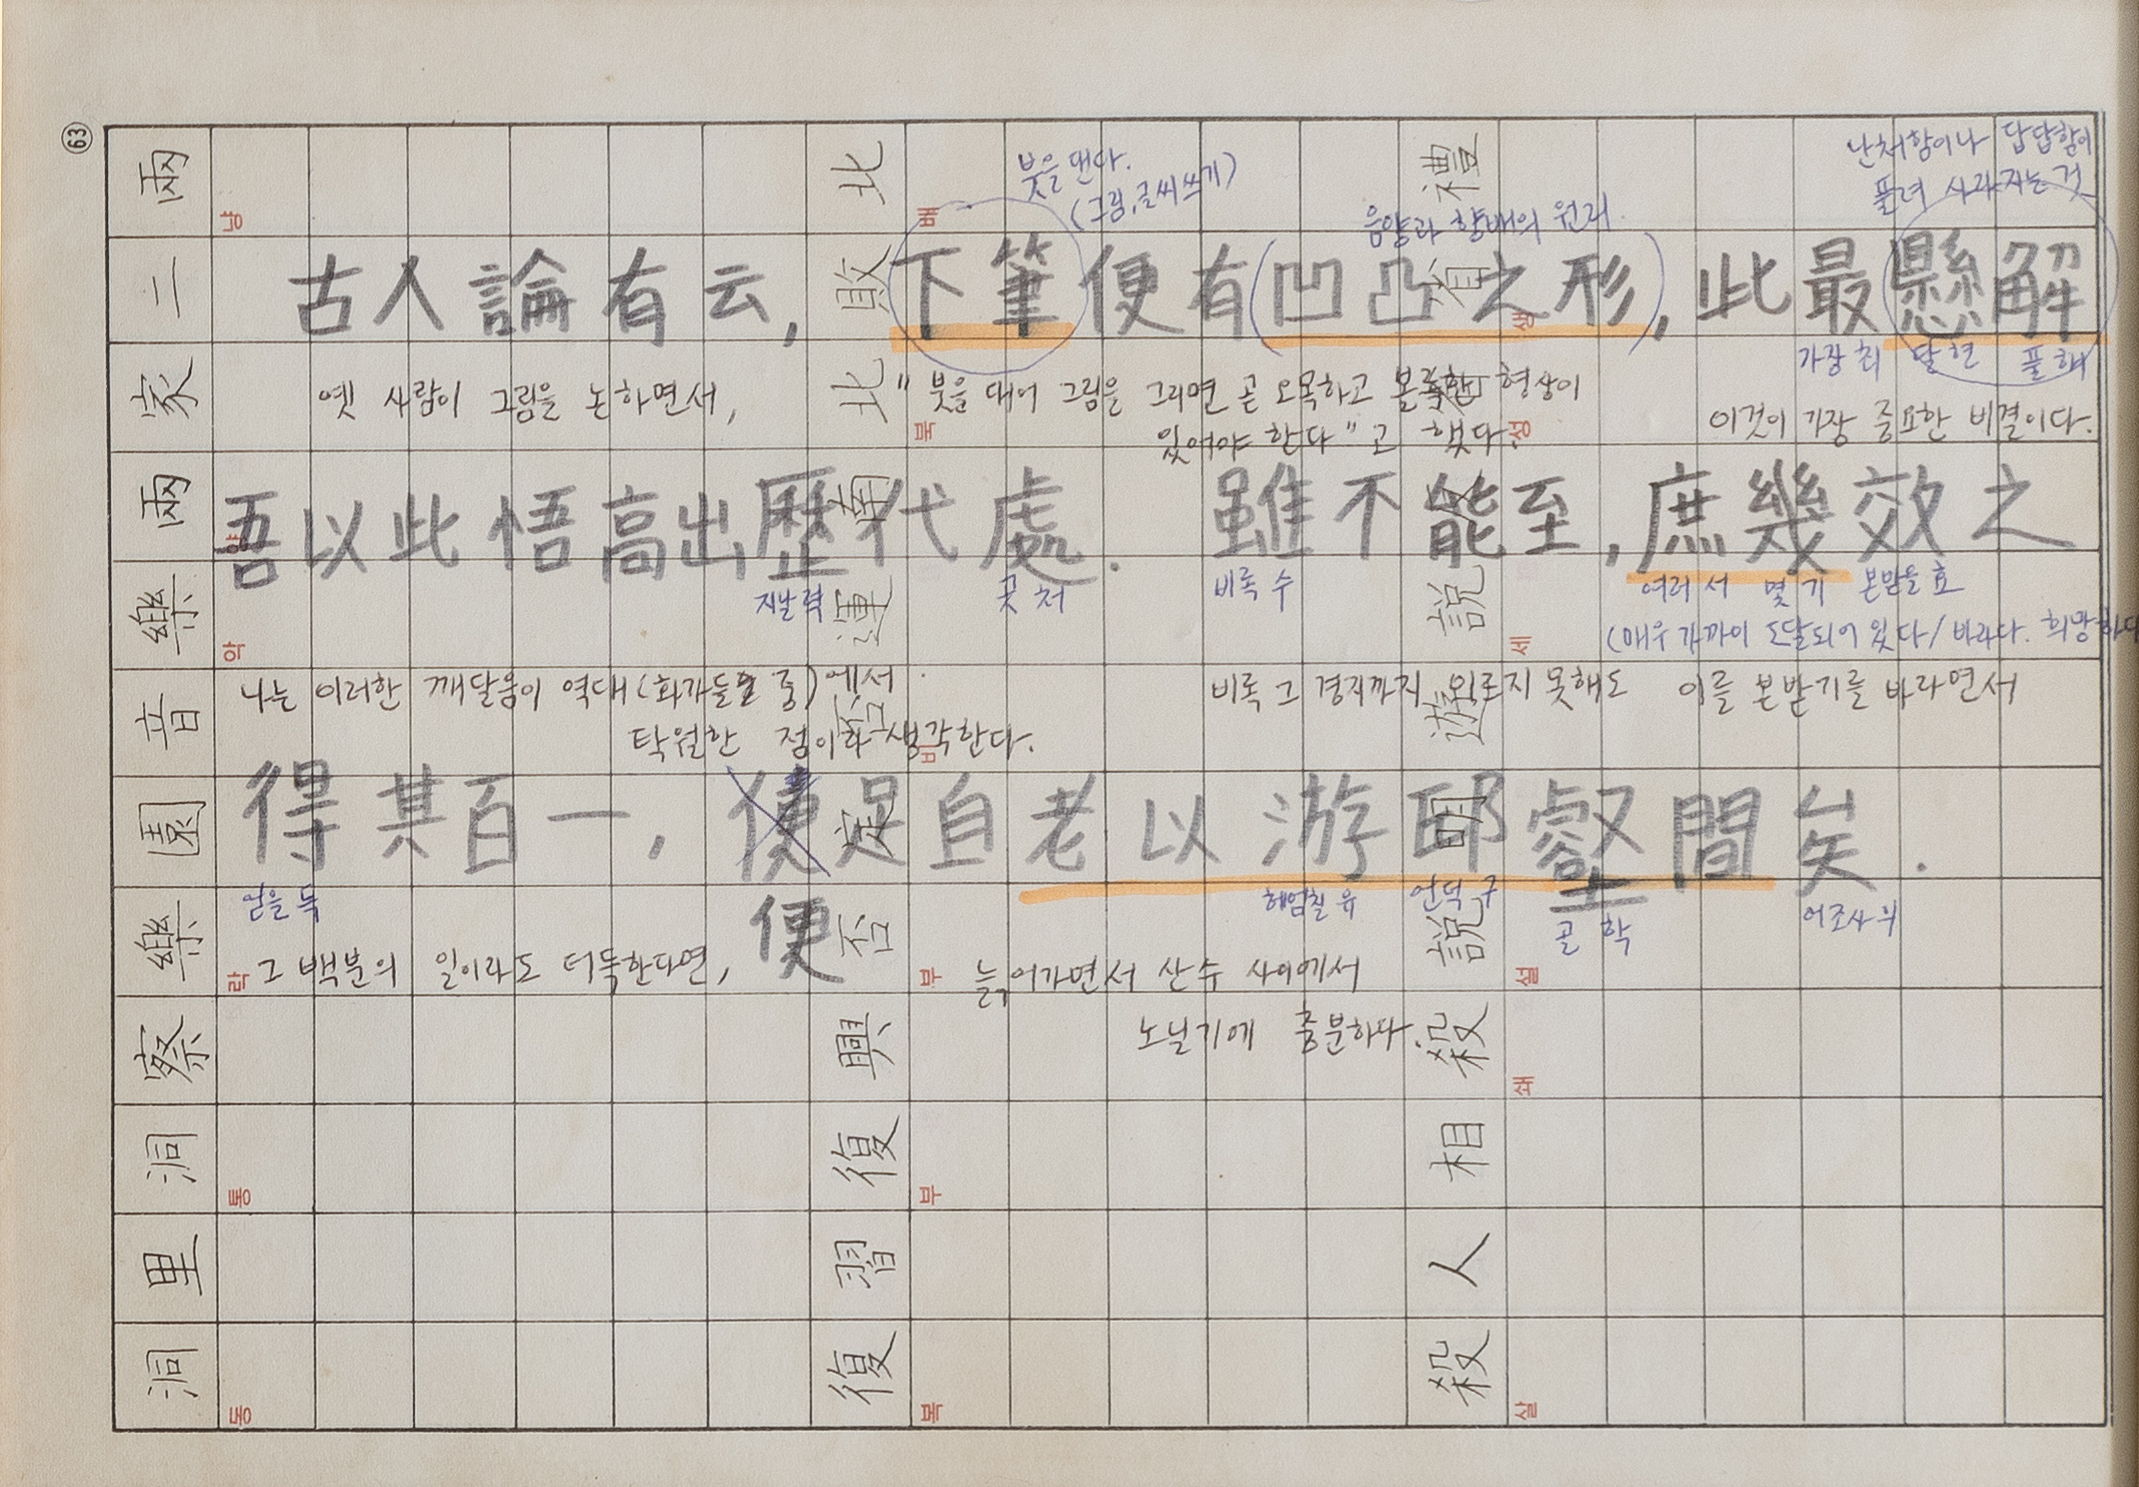 63
난처함이나 답답함이
풀려 사라지는 것
붓을 댄다.
(그림,글씨쓰기)
음양과 향배의 원리.
古人論有云, 下筆便有(凹凸之形), 此最懸解
가장 최 달 현 풀 해
옛 사람이 그림을 논하면서, "붓을 대어 그림을 그리면 곧 오목하고 볼록한 형상이
있어야 한다"고 했다. 이것이 가장 중요한 비결이다.
吾以此悟高出歷代處. 雖不能至, 庶幾效之
지날 력 곳 처 비록 수 여러 서 몇 기 본받을 효
(매우 가까이 도달되어 있다/바라다. 희망하다
나는 이러한 깨달음이 역대(화가들 중)에서 비록 그 경지까지 이르지 못해도 이를 본받기를 바라면서
탁월한 점이라 생각한다.
得其百一, 便足自老以游邱壑間矣.
便
얻을 득 헤엄칠 유 언덕 구 골 학 어조사 의
그 백분의 일이라도 터득한다면, 늙어가면서 산수 사이에서
노닐기에 충분하다.
兩二家兩樂音園樂察洞里洞
냥 양 악 락 통 동
北敗北南運否定否興復習復
배 북 비 부 부 복
禮省
생 성
說遊
세
明說相殺人殺
설 쇄 살